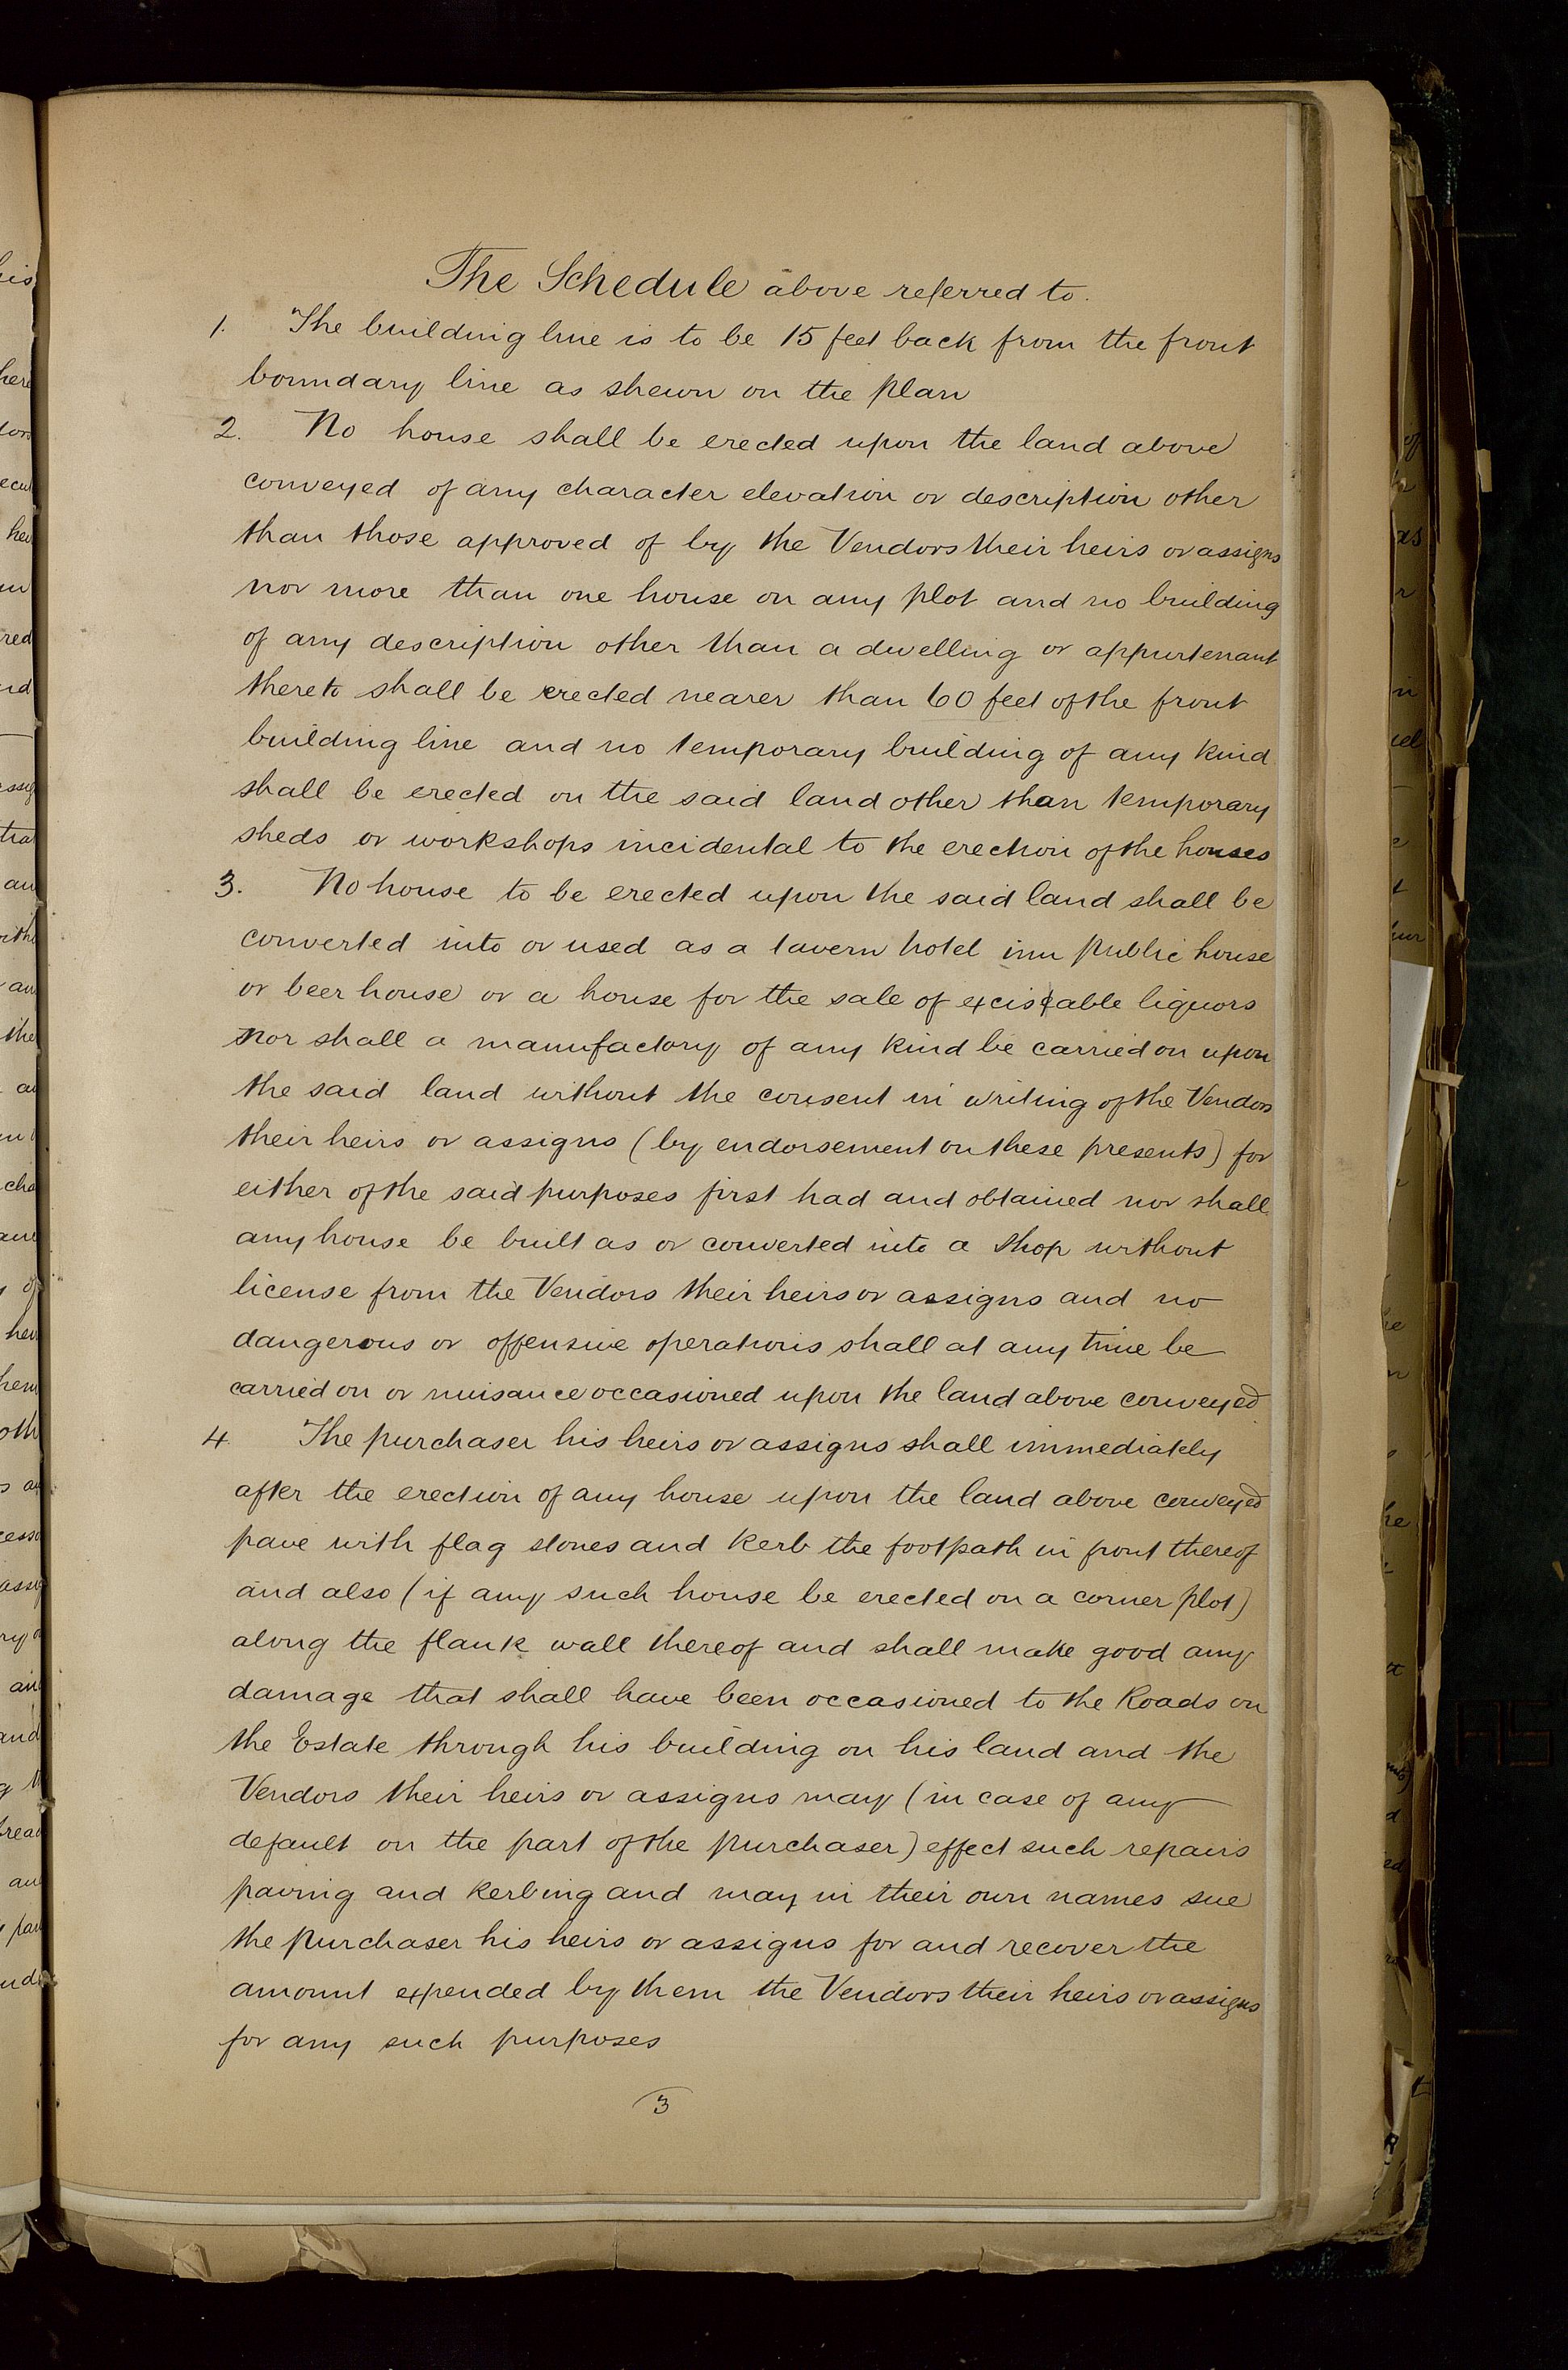 The Schedule above referred to.
1. The building line is to be 15 feet back from the front
boundary line as shewn on the plan
2. No house shall be erected upon the land above
conveyed of any character elevation or description other
than those approved of by the Vendors their heirs or assigns
nor more than one house on any plot and no building
of any description other than a dwelling or appurtenant
thereto shall be erected nearer than 60 feet of the front
building line and no temporary building of any kind
shall be erected on the said land other than temporary
sheds or workshops incidental to the erection of the houses
3. No house to be erected upon the said land shall be
converted into or used as a tavern hotel inn public house
or beer house or a house for the sale of exciseable liquors
nor shall a manufactory of any kind be carried on upon
the said land without the consent in writing of the Vendors
their heirs or assigns (by endorsement on these presents) for
either of the said purposes first had and obtained nor shall
any house be built as or converted into a shop without
license from the Vendors their heirs or assigns and no
dangerous or offensive operations shall at any time be
carried on or nuisance occasioned upon the land above conveyed
4. The purchaser his heirs or assigns shall immediately
after the erection of any house upon the land above conveyed
pave with flag stones and kerb the footpath in front thereof
and also (if any such house be erected on a corner plot)
along the flank wall thereof and shall make good any
damage that shall have been occasioned to the Roads on
the Estate through his building on his land and the
Vendors their heirs or assigns may (in case of any
default on the part of the purchaser) effect such repairs
paving and kerbing and may in their own names sue
the purchaser his heirs or assigns for and recover the
amount expended by them the Vendors their heirs or assigns
for any such purposes
3